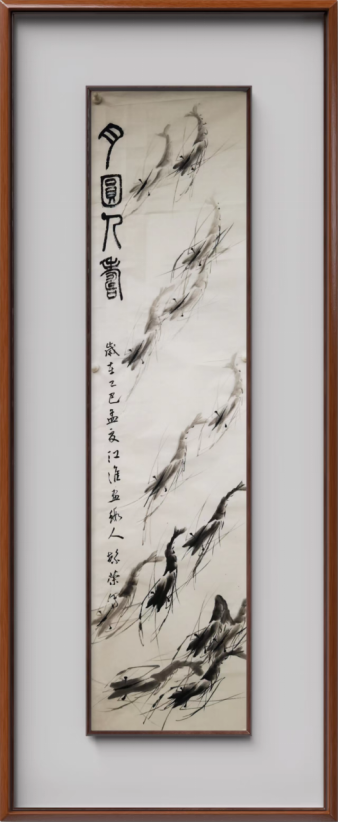 月圓人壽
歲在乙巳孟夏江淮畫蝦人